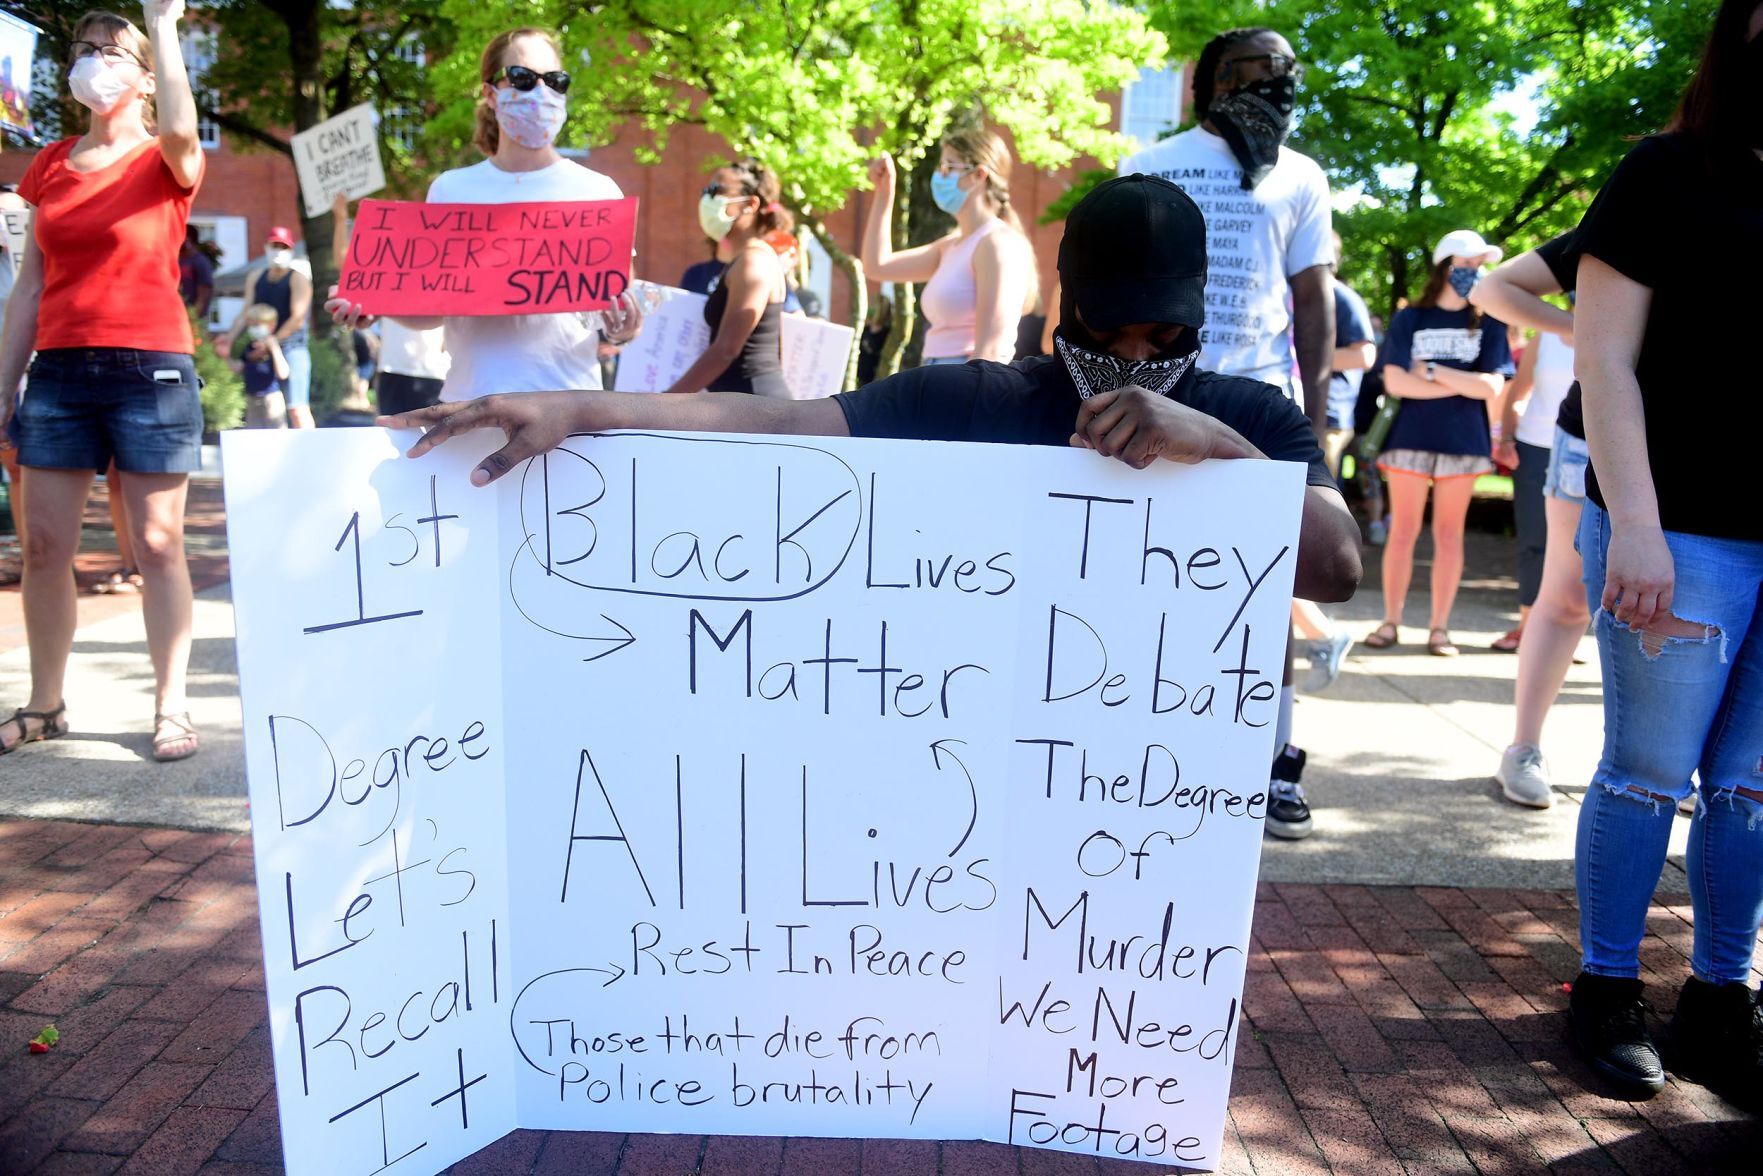 I CAN'T
BREATHE
I WILL NEVER
UNDERSTAND
BUT I WILL STAND
DREAM LIKE M
LIKE HARRIE
LIKE MALCOLM
GARVEY
MAYA
MADAM C.J.
FREDERICK
W.E.B.
THURGOOD
LIKE ROSA
1st
Degree
Let's
Recall
It
Black Lives
Matter
All Lives
Rest In Peace
Those that die from
Police brutality
They
Debate
The Degree
Of
Murder
We Need
More
Footage